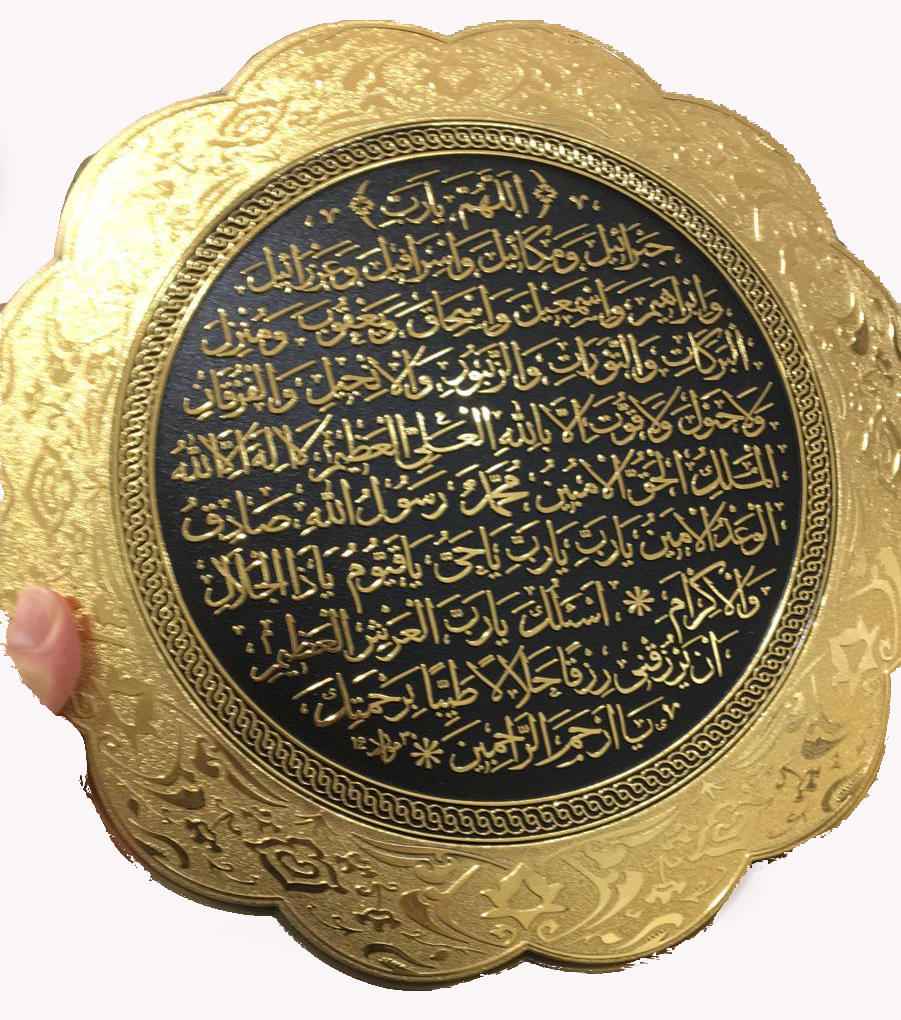 ﴿ اَللّٰهُمَّ يَارَبِّ ﴾
جَبْرَائِيلَ وَمِكَائِيلَ وَاِسْرَافِيلَ وَعَزْرَائِيلَ
وَاِبْرَاهِيمَ وَاِسْمٰعِيلَ وَاِسْحَاقَ وَيَعْقُوبَ وَمُنْزِلَ
الْبَرَكَاتِ وَالتَّوْرَاتِ وَالزَّبُورِ وَالْاِنْجِيلِ وَالْفُرْقَانِ
وَلَاحَوْلَ وَلَاقُوَّةَ اِلَّا بِاللّٰهِ الْعَلِىِّ الْعَظِيمِ لَا اِلٰهَ اِلَّا اللّٰهُ
الْمَلِكُ الْحَقُّ الْمُبِينُ مُحَمَّدٌ رَسُولُ اللّٰهِ صَادِقُ
الْوَعْدِ الْاَمِينُ يَارَبِّ يَارَبِّ يَاحَىُّ يَاقَيُّومُ يَاذَا الْجَلَالِ
وَالْاِكْرَامِ * اَسْئَلُكَ يَارَبَّ الْعَرْشِ الْعَظِيمِ
اَنْ يَرْزُقَنِى رِزْقًا حَلَالًا طَيِّبًا بِرَحْمَتِكَ
يَا اَرْحَمَ الرَّاحِمِينَ *